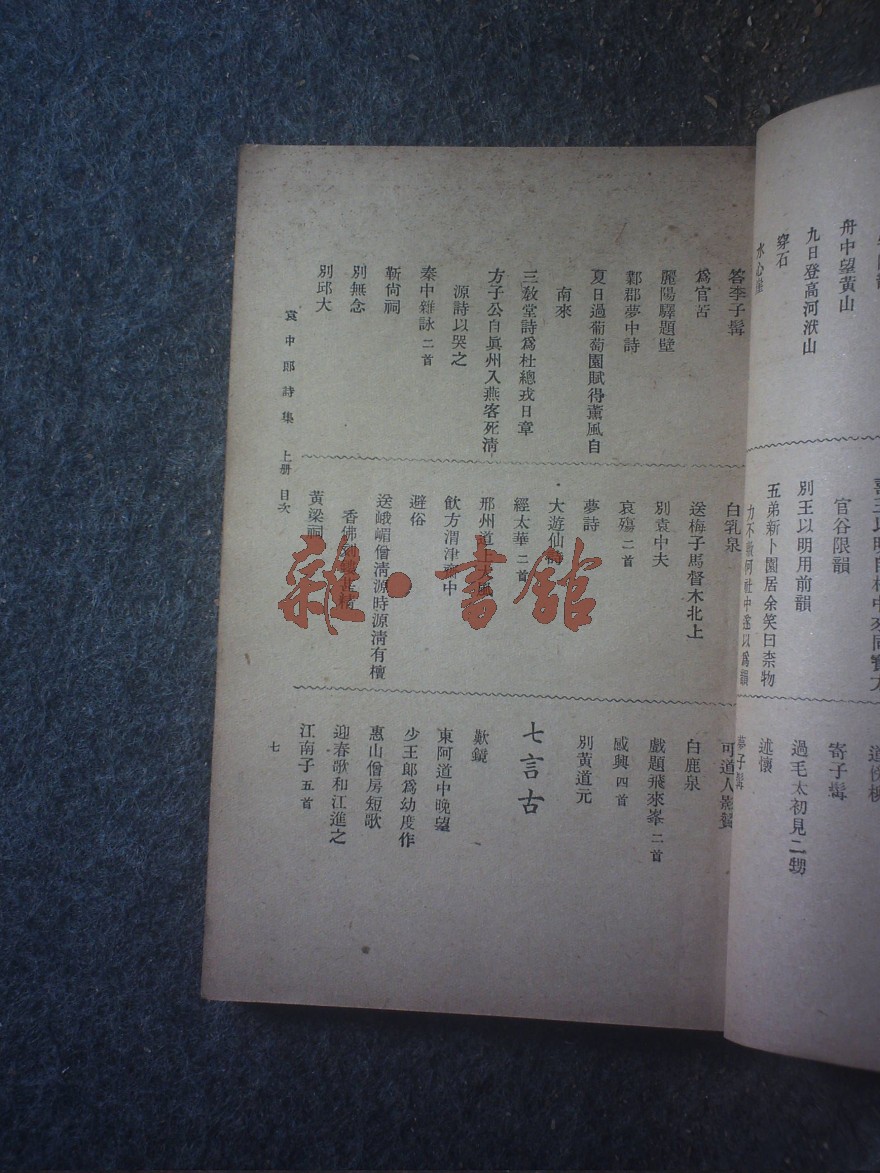 舟中望黃山
九日登高河洑山
穿石
水心崖
官谷限韻
別王以明用前韻
五弟新卜園居余笑曰柰物
力不敷何社中遂以爲韻
寄子髯
過毛太初見二甥
述懷
夢子髯
答李子髯
爲官苦
麗陽驛題壁
鄴郡夢中詩
夏日過葡萄園賦得薰風自
南來
三敎堂詩爲杜總戎日章
方子公自眞州入燕客死淸
源詩以哭之
秦中雜詠 二首
靳尙祠
別無念
別邱大
白乳泉
送梅子馬督木北上
別袁中夫
哀殤 二首
夢詩
大遊仙詩
經太華 二首
邢州道上大風
飮方渭津齋中
避俗
送峨嵋僧淸源時源淸有檀
香佛
黃梁祠
可道人影贊
白鹿泉
戲題飛來峯 二首
感興 四首
別黃道元
七言古
歎鏡
東阿道中晚望
少王郎爲幼度作
惠山僧房短歌
迎春歌和江進之
江南子 五首
袁中郎詩集 上册 目次
七
雜·書舘